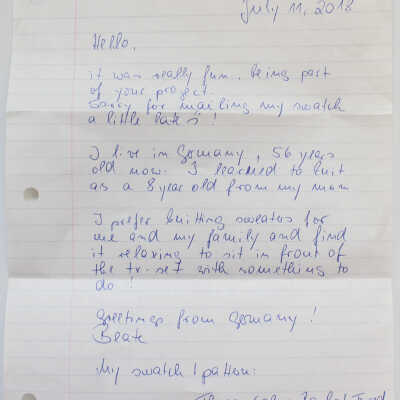 July 11, 2018
Hello,
it was really fun, being part
of your project.
Sorry for mailing my swatch
a little late !
I live in Germany, 56 years
old now. I learned to knit
as a 8 year old from my mom
I prefer knitting sweaters for
me and my family and find
it relaxing to sit in front of
the tv-set with something to
do !
Greetings from Germany !
Beate
My swatch / pattern: